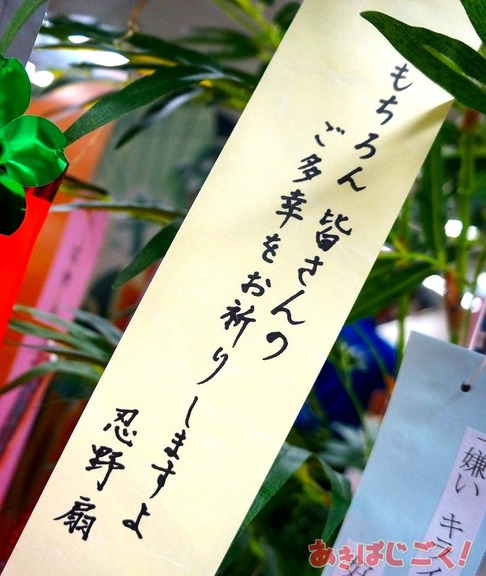 もちろん 皆さんの
ご多幸をお祈りしますよ
忍野 扇
嫌い キライ
あきばじごく!